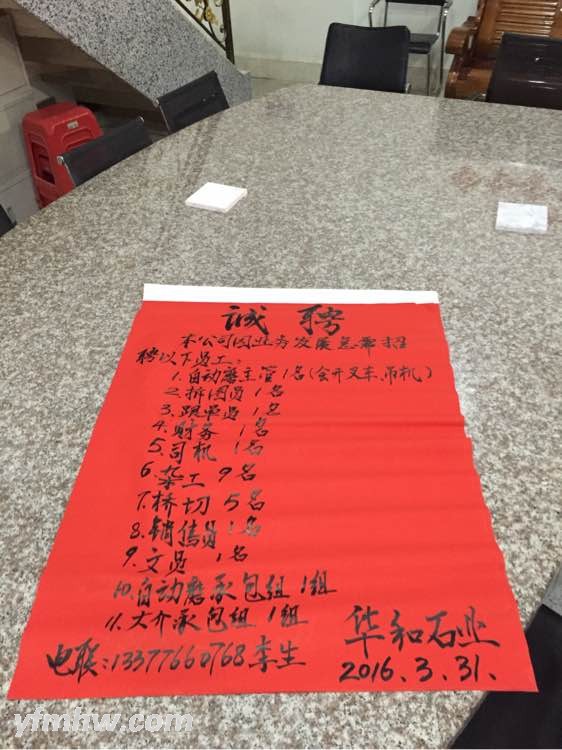 诚聘
本公司因业务发展急需招
聘以下员工:
1.自动磨主管1名(会开叉车.吊机)
2.拆图员1名
3.跟单员1名
4.财务1名
5.司机1名
6.杂工9名
7.桥切5名
8.销售员1名
9.文员1名
10.自动磨承包组1组
11.大介承包组1组
电联:13377660768李生
华和石业
2016.3.31.
yfmhw.com